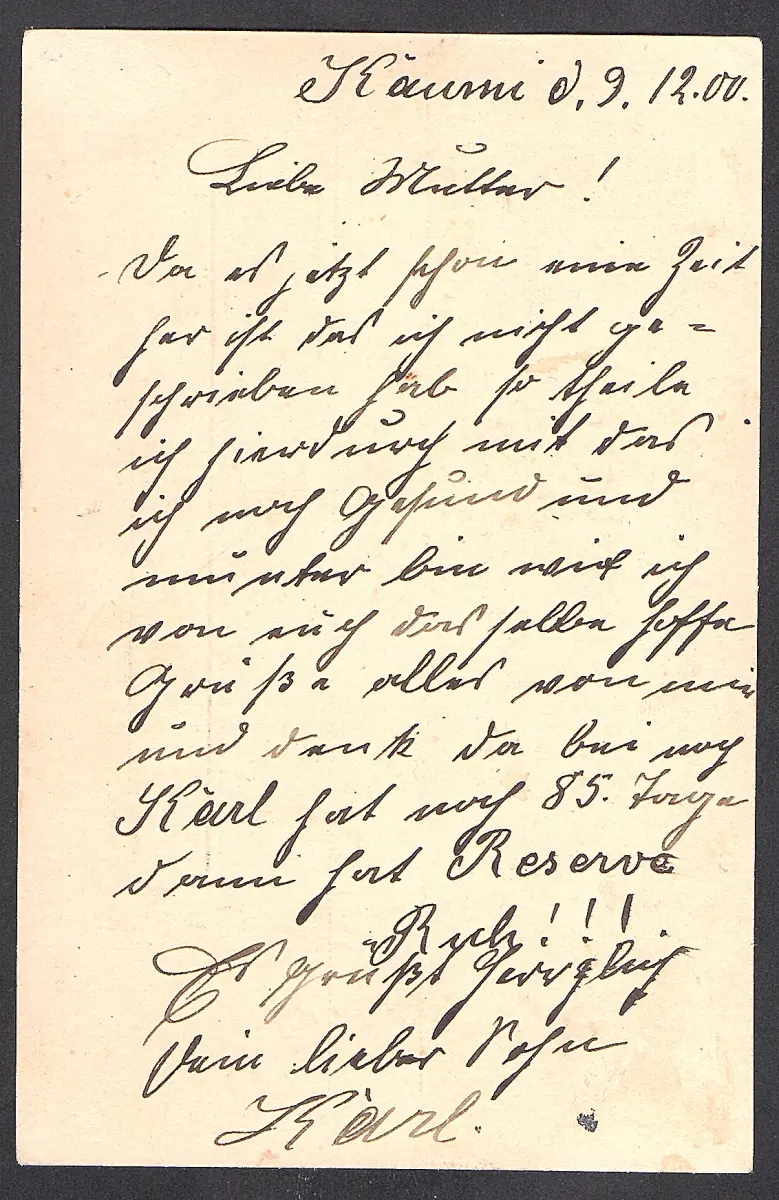 Käumi d. 9. 12.00.
Liebe Mutter!
Da es jetzt schon eine Zeit
her ist das ich nicht ge=
schrieben hab so theile
ich hierdurch mit das
ich noch Gesund und
munter bin wie ich
von euch das selbe hoffe
Grüße alles von mir
und denk da bei noch
Karl hat noch 85. Tage
dann hat Reserve
Ruh!!!
Es grüßt Herzlich
Dein lieber Sohn
Karl.